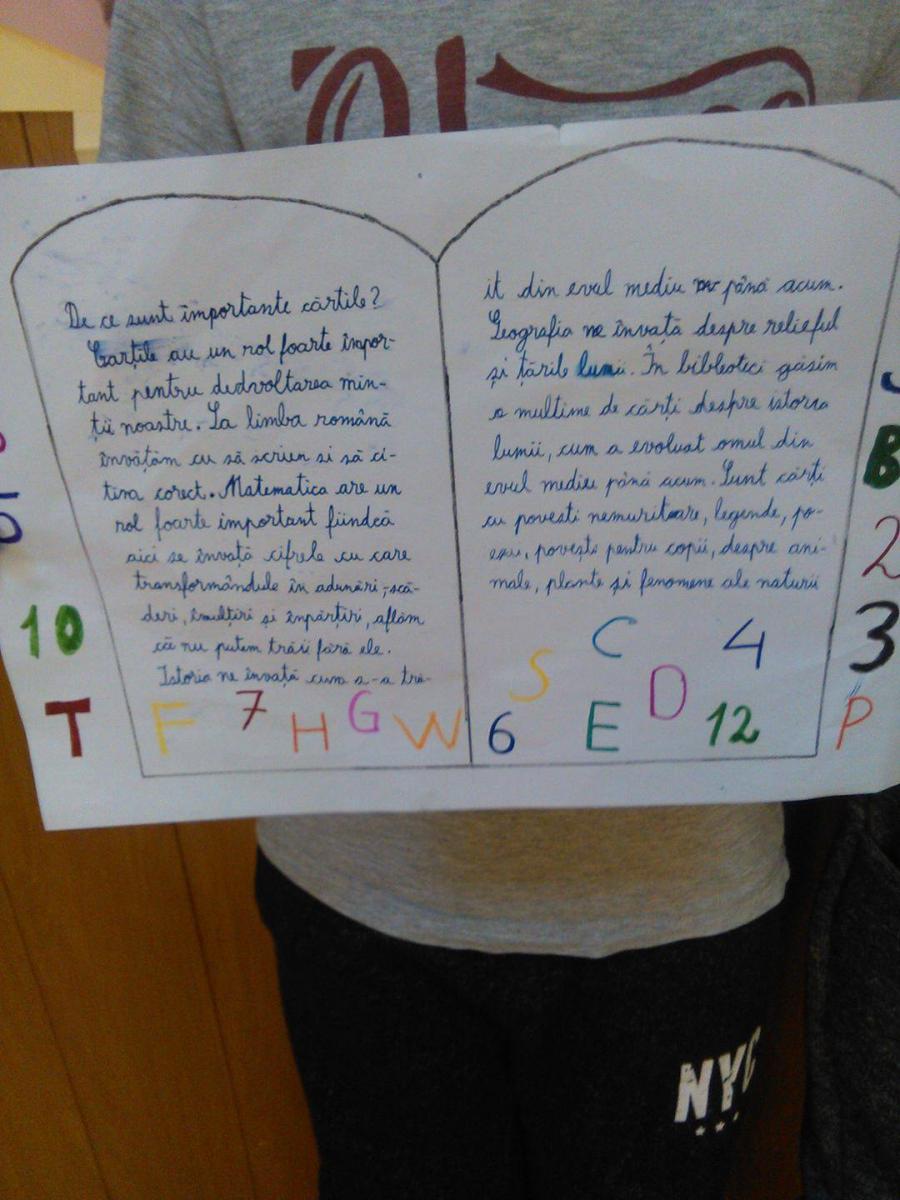 De ce sunt importante cărtile?
Carțile au un rol foarte impor-
tant pentru dedvoltarea min-
ții noastre. La limba română
învățăm cu să scrien si să ci-
tim corect. Matematica are un
rol foarte important fiindcă
aici se învată cifrele cu care
transformândule în adunări, scă-
deri, îmulțiri și înpărțiri, aflăm
că nu putem trăii fără ele.
Istoria ne învată cum s-a tră-
F 7 H G W
it din evul mediu până acum.
Geografia ne învață despre relieful
și țările lumii. În bibleoteci găsim
o multime de cărți despre istoria
lumii, cum a evoluat omul din
evul mediu până acum. Sunt cărți
cu povesti nemuritoare, legende, po-
povești pentru copii, despre ani-
male, plante și fenomene ale naturii
C 4
S D
6 E 12
10
T
B
2
3
P
NYC